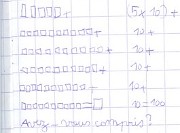 □□□□+ (5x10)+
□□□□□□□□□□+ 10+
□□□□□□□□□□+ 10+
□□□□□□□□□□+ 10+
□□□□□□□□□+ 10+
□□□□□□□□□=□ 10=100
Avez-vous compris?